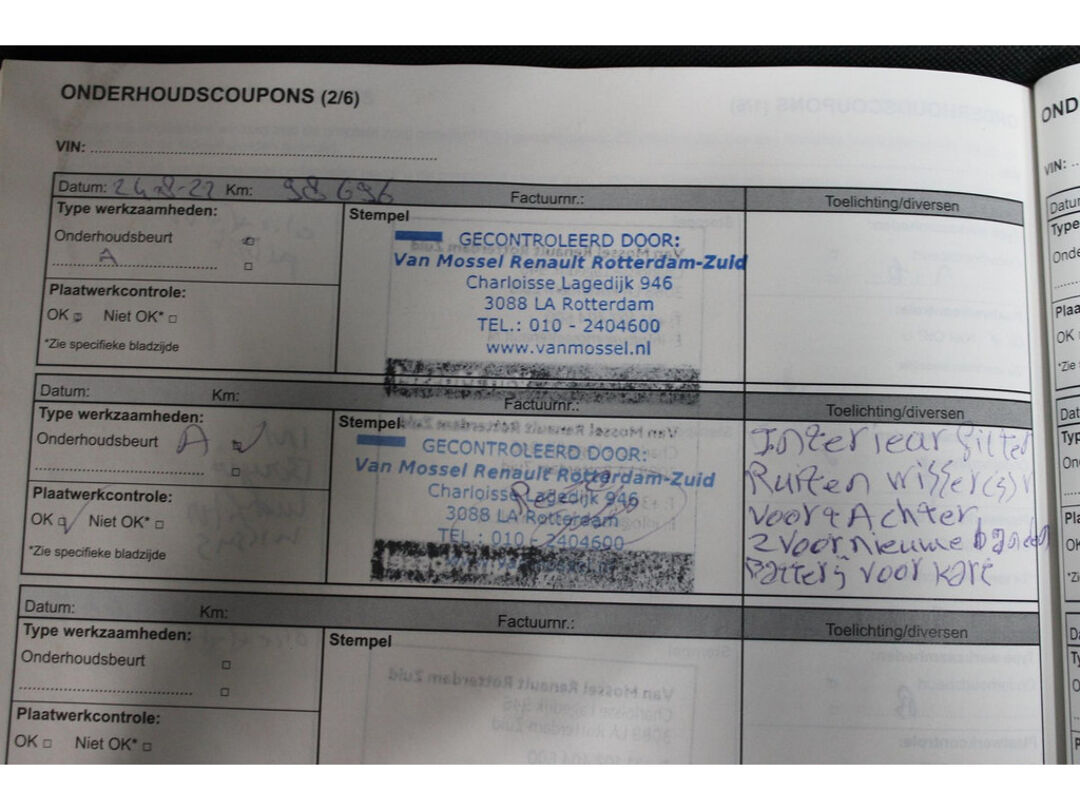 ONDERHOUDSCOUPONS (2/6)
VIN:
Datum: 24-8-22 Km: 98 696 Factuurnr.: Toelichting/diversen
Type werkzaamheden:
Onderhoudsbeurt
A
Plaatwerkcontrole:
OK Niet OK*
*Zie specifieke bladzijde
Stempel
GECONTROLEERD DOOR:
Van Mossel Renault Rotterdam-Zuid
Charloisse Lagedijk 946
3088 LA Rotterdam
TEL.: 010 - 2404600
www.vanmossel.nl
Datum: Km: Factuurnr.: Toelichting/diversen
Type werkzaamheden:
Onderhoudsbeurt A
Plaatwerkcontrole:
OK Niet OK*
*Zie specifieke bladzijde
Stempel
GECONTROLEERD DOOR:
Van Mossel Renault Rotterdam-Zuid
Charloisse Lagedijk 946
3088 LA Rotterdam
TEL.: 010 - 2404600
Interieur filter
Ruiten
voor + Achter
2 voor nieuwe banden
Batterij voor kart
Datum: Km: Factuurnr.: Toelichting/diversen
Type werkzaamheden:
Onderhoudsbeurt
Plaatwerkcontrole:
OK Niet OK*
Stempel
OND
VIN: